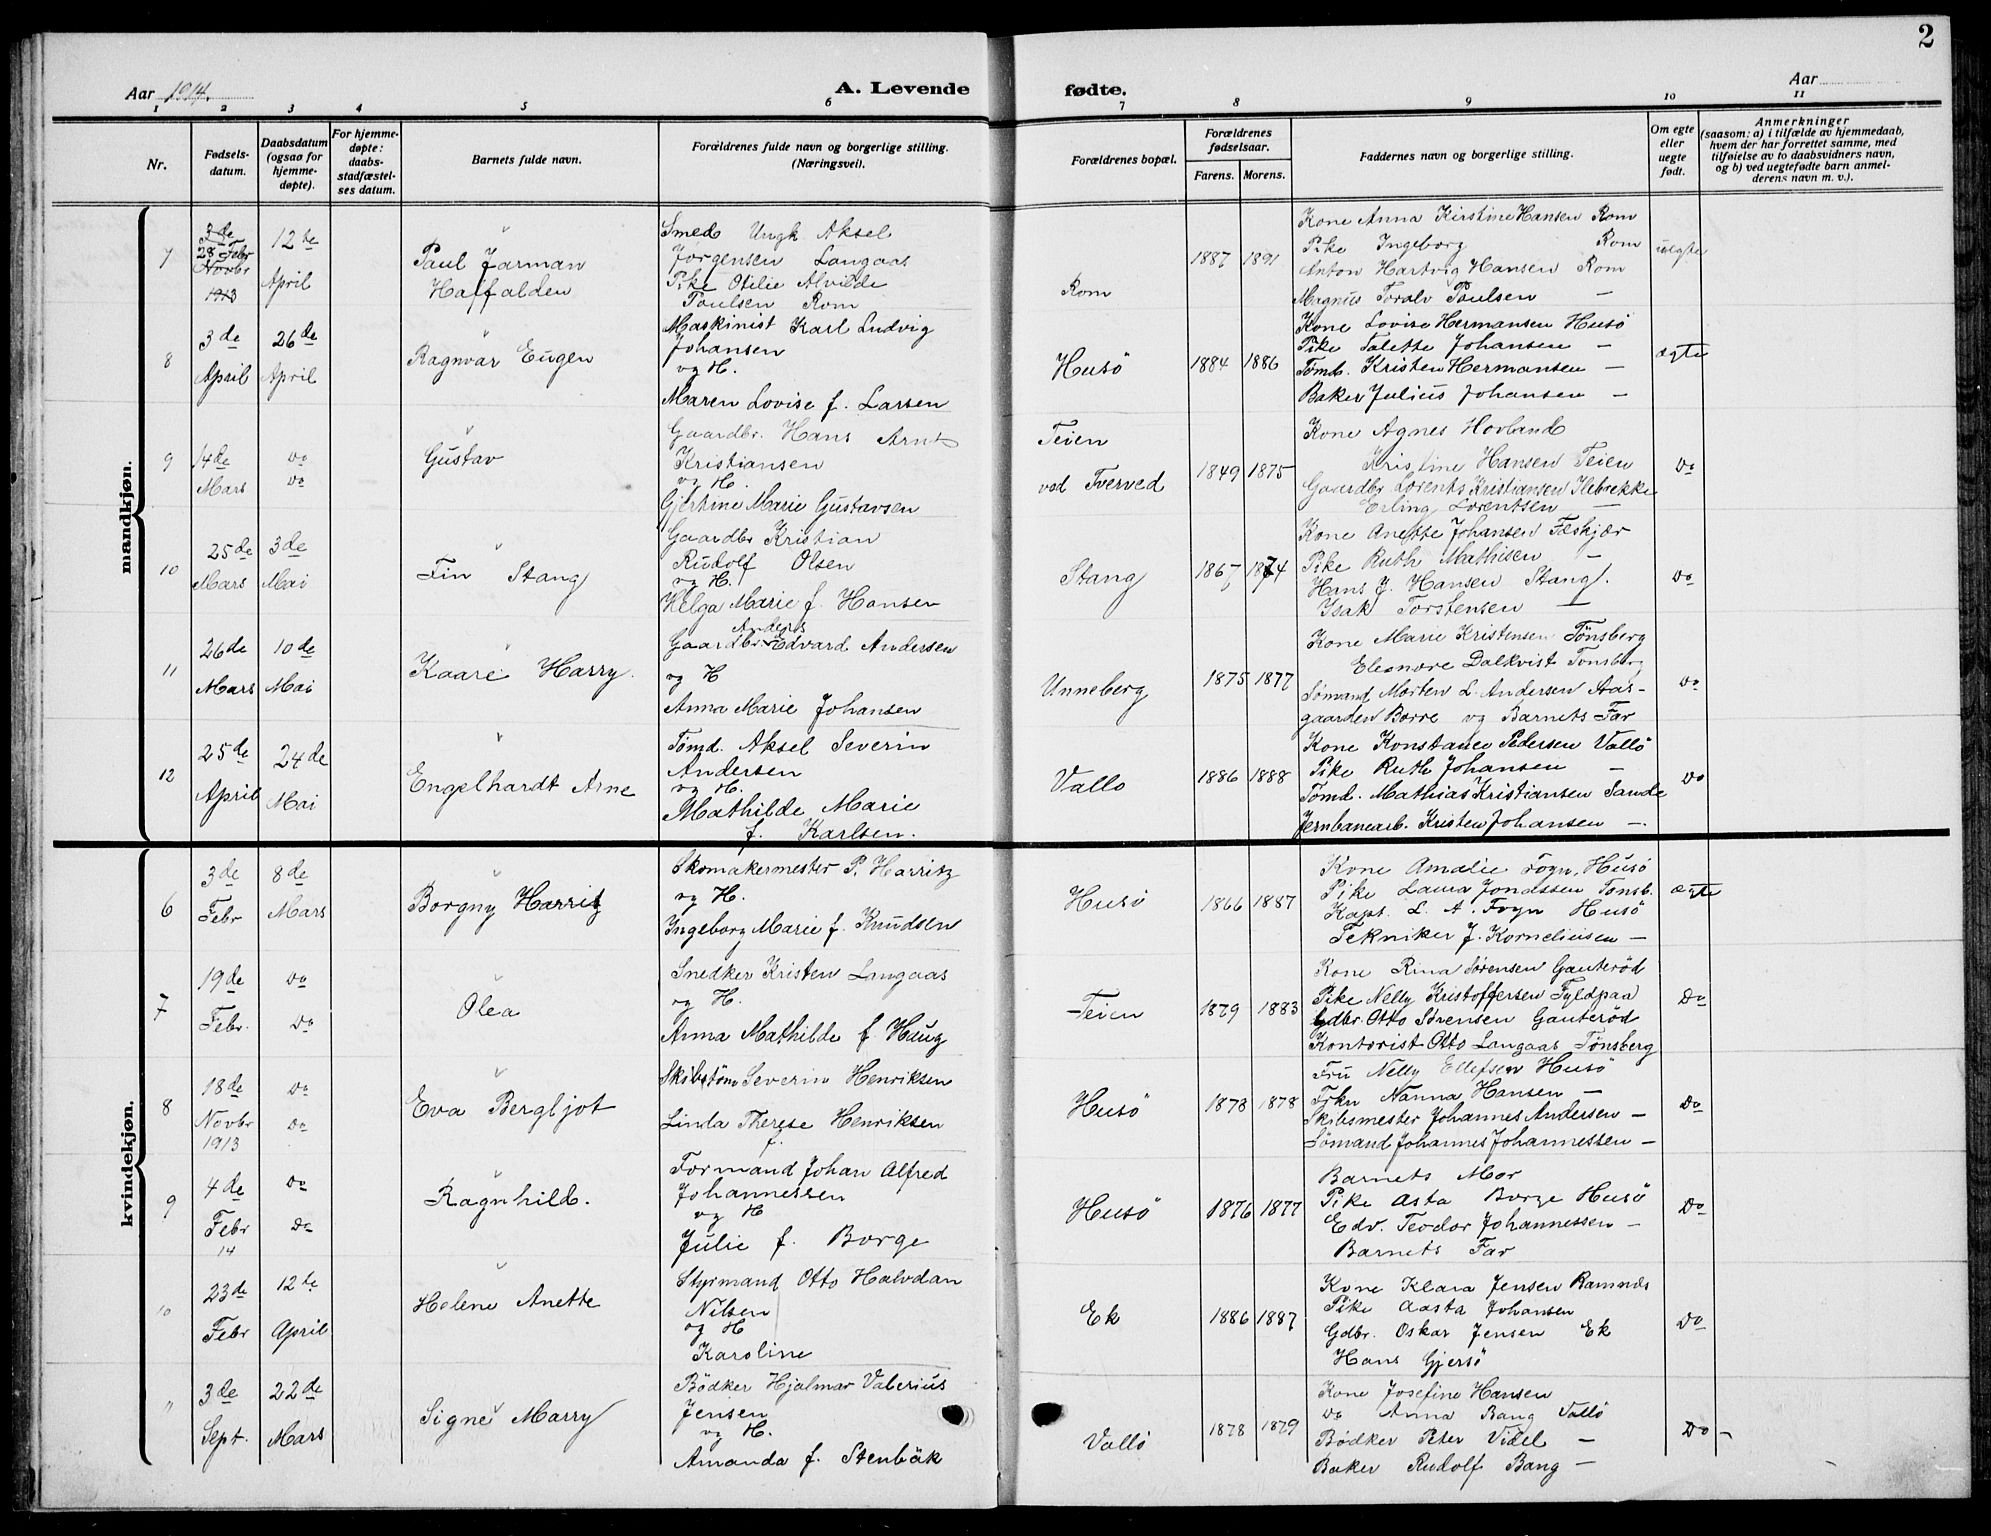 2
Aar 1914.
A. Levende
fødte.
Aar
1 2 3 4 5 6 7 8 9 10 11
Nr.
Fødsels-
datum.
Daabsdatum
(ogsaa for
hjemme-
døpte).
For hjemme-
døpte:
daabs-
stadfæstel-
ses datum.
Barnets fulde navn.
Forældrenes fulde navn og borgerlige stilling.
(Næringsvei).
Forældrenes bopæl.
Forældrenes
fødselsaar.
Farens. Morens.
Faddernes navn og borgerlige stilling.
Om egte
eller
uegte
født.
Anmerkninger
(saasom: a) i tilfælde av hjemmedaab,
hvem der har forrettet samme, med
tilføielse av to daabsvidners navn,
og b) ved uegtefødte barn anmel-
derens navn m. v.).
mandkjøn.
7
3de
28 Febr
Novbr
1913
12te
April
Paul Jarman
Halfalden
Smed Ungk. Aksel
Jørgensen Langaas
Pike Otilie Alvilde
Poulsen Rom
Rom
1887 1891
Kone Anna Kirstine Hansen Rom
Pike Ingeborg Rom
Anton Hartvig Hansen Rom
Magnus Toralv Poulsen —
uægte
8
3de
April
26de
April
Ragnvar Eugen
Maskinist Karl Ludvig
Johansen
og H.
Maren Lovise f. Larsen
Husö
1884 1886
Kone Lovise Hermansen Husö
Pike Talette Johansen —
Tömb. Kristen Hermansen —
Baker Julius Johansen —
ægte
9
14de
Mars
Do
Do
Gustav
Gaardbr. Hans Arnt
Kristiansen
og H.
Gjertine Marie Gustavsen
Teien
ved Tverved
1849 1875
Kone Agnes Hovland
Kristine Hansen Teien
Gaardbr Lorents Kristiansen Ilebrekke
Erling Lorentsen —
Do
10
25de
Mars
3de
Mai
Fin Stang
Gaardbr Kristian
Rudolf Olsen
og H.
Helga Marie f. Hansen
Stang
1867 1874
Kone Anette Johansen Feskjær
Pike Ruth Mathisen —
Hans J. Hansen Stang.
Isak Torstensen —
Do
11
26de
Mars
10de
Mai
Kaare Harry.
Anders
Gaardbr. Edvard Andersen
og H
Anna Marie Johansen
Unneberg
1875 1877
Kone Marie Kristensen Tönsberg
Eleonore Dalkvist Tonsberg
Sömand Morten L. Andersen Aas-
gaarden Borre og Barnets Far
Do
12
25de
April
24de
Mai
Engelhardt Arne
Tömd. Aksel Severin
Andersen
og H.
Mathilde Marie
f. Karlsen.
Vallo
1886 1888
Kone Konstance Pedersen Vallö
Pike Ruth Johansen —
Tömd. Mathias Kristiansen Sande
Jernbanearb. Kristen Johansen —.
Do
kvindekjøn.
6
3de
Febr
8de
Mars
Borgny Harritz
Skomakermester P. Harritz
og H.
Ingeborg Marie f. Knudsen
Husö
1866 1887
Kone Amalie Fogn, Husö
Pike Laura Jonassen Tonsb.
Kapt. L. A. Fogn Husö
Tekniker J. Korneliusen —
ægte
7
19de
Febr.
Do
Do
Olea
Snedker Kristen Langaas
og H.
Anna Mathilde f. Haug
Teien
1879 1883
Kone Rina Sörensen Gauteröd
Pike Nelly Kristoffersen Fyldpaa
Gdbr. Otto Sörensen Gauteröd
Kontorist Otto Langaas Tönsberg
Do
8
18de
Novbr
1913
Do
Do
Eva Bergljot
Skibstöm Severin Henriksen
Linda Therese Henriksen
f.
Husö
1873 1878
Fru Nelly Ellefsen Husö
Frkn Nanna Hansen —
Skibsmester Johannes Andersen —
Sömand Johannes Johannessen —
Do
9
4de
Febr
14
Do
Do
Ragnhild.
Formand Johan Alfred
Johannessen
og H
Julie f. Borge
Husö
1876 1877
Barnets Mor
Pike Asta Borge Husö
Edv. Teodor Johannessen —
Barnets Far
Do
10
23de
Febr
12te
April
Helene Anette
Styrmand Otto Halvdan
Nilsen
og H
Karoline
Ek
1886 1887
Kone Klara Jensen Ramnæs
Pike Aasta Johansen
Gdbr. Oskar Jensen Ek
Hans Gjersö
Do
"
3de
Sept.
22de
Mars
Signe Marry
Bödker Hjalmar Valerius
Jensen
og H.
Amanda f. Stenbäk
Vallö
1878 1879
Kone Josefine Hansen
Do Anna Bang Vallö
Bödker Peter Videl —
Baker Rudolf Bang —
Do —